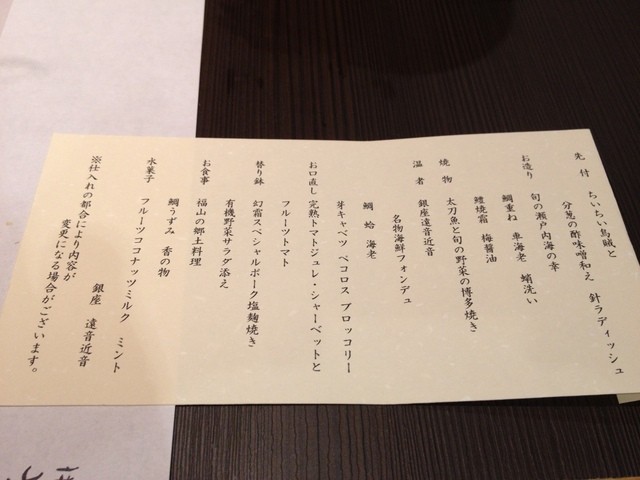 先付 ちいちい烏賊と
分葱の酢味噌和え 針ラディッシュ
お造り 旬の瀬戸内海の幸
鯛重ね 車海老 蛸洗い
鱧焼霜 梅醤油
焼物 太刀魚と旬の野菜の博多焼き
温者 銀座遠音近音
名物海鮮フォンデュ
鯛 蛤 海老
芽キャベツ ペコロス ブロッコリー
お口直し 完熟トマトジュレ・シャーベットと
フルーツトマト
替り鉢 幻霜スペシャルポーク塩麹焼き
有機野菜サラダ添え
お食事 福山の郷土料理
鯛うずみ 香の物
水菓子 フルーツココナッツミルク ミント
銀座 遠音近音
※仕入れの都合により内容が
変更になる場合がございます。